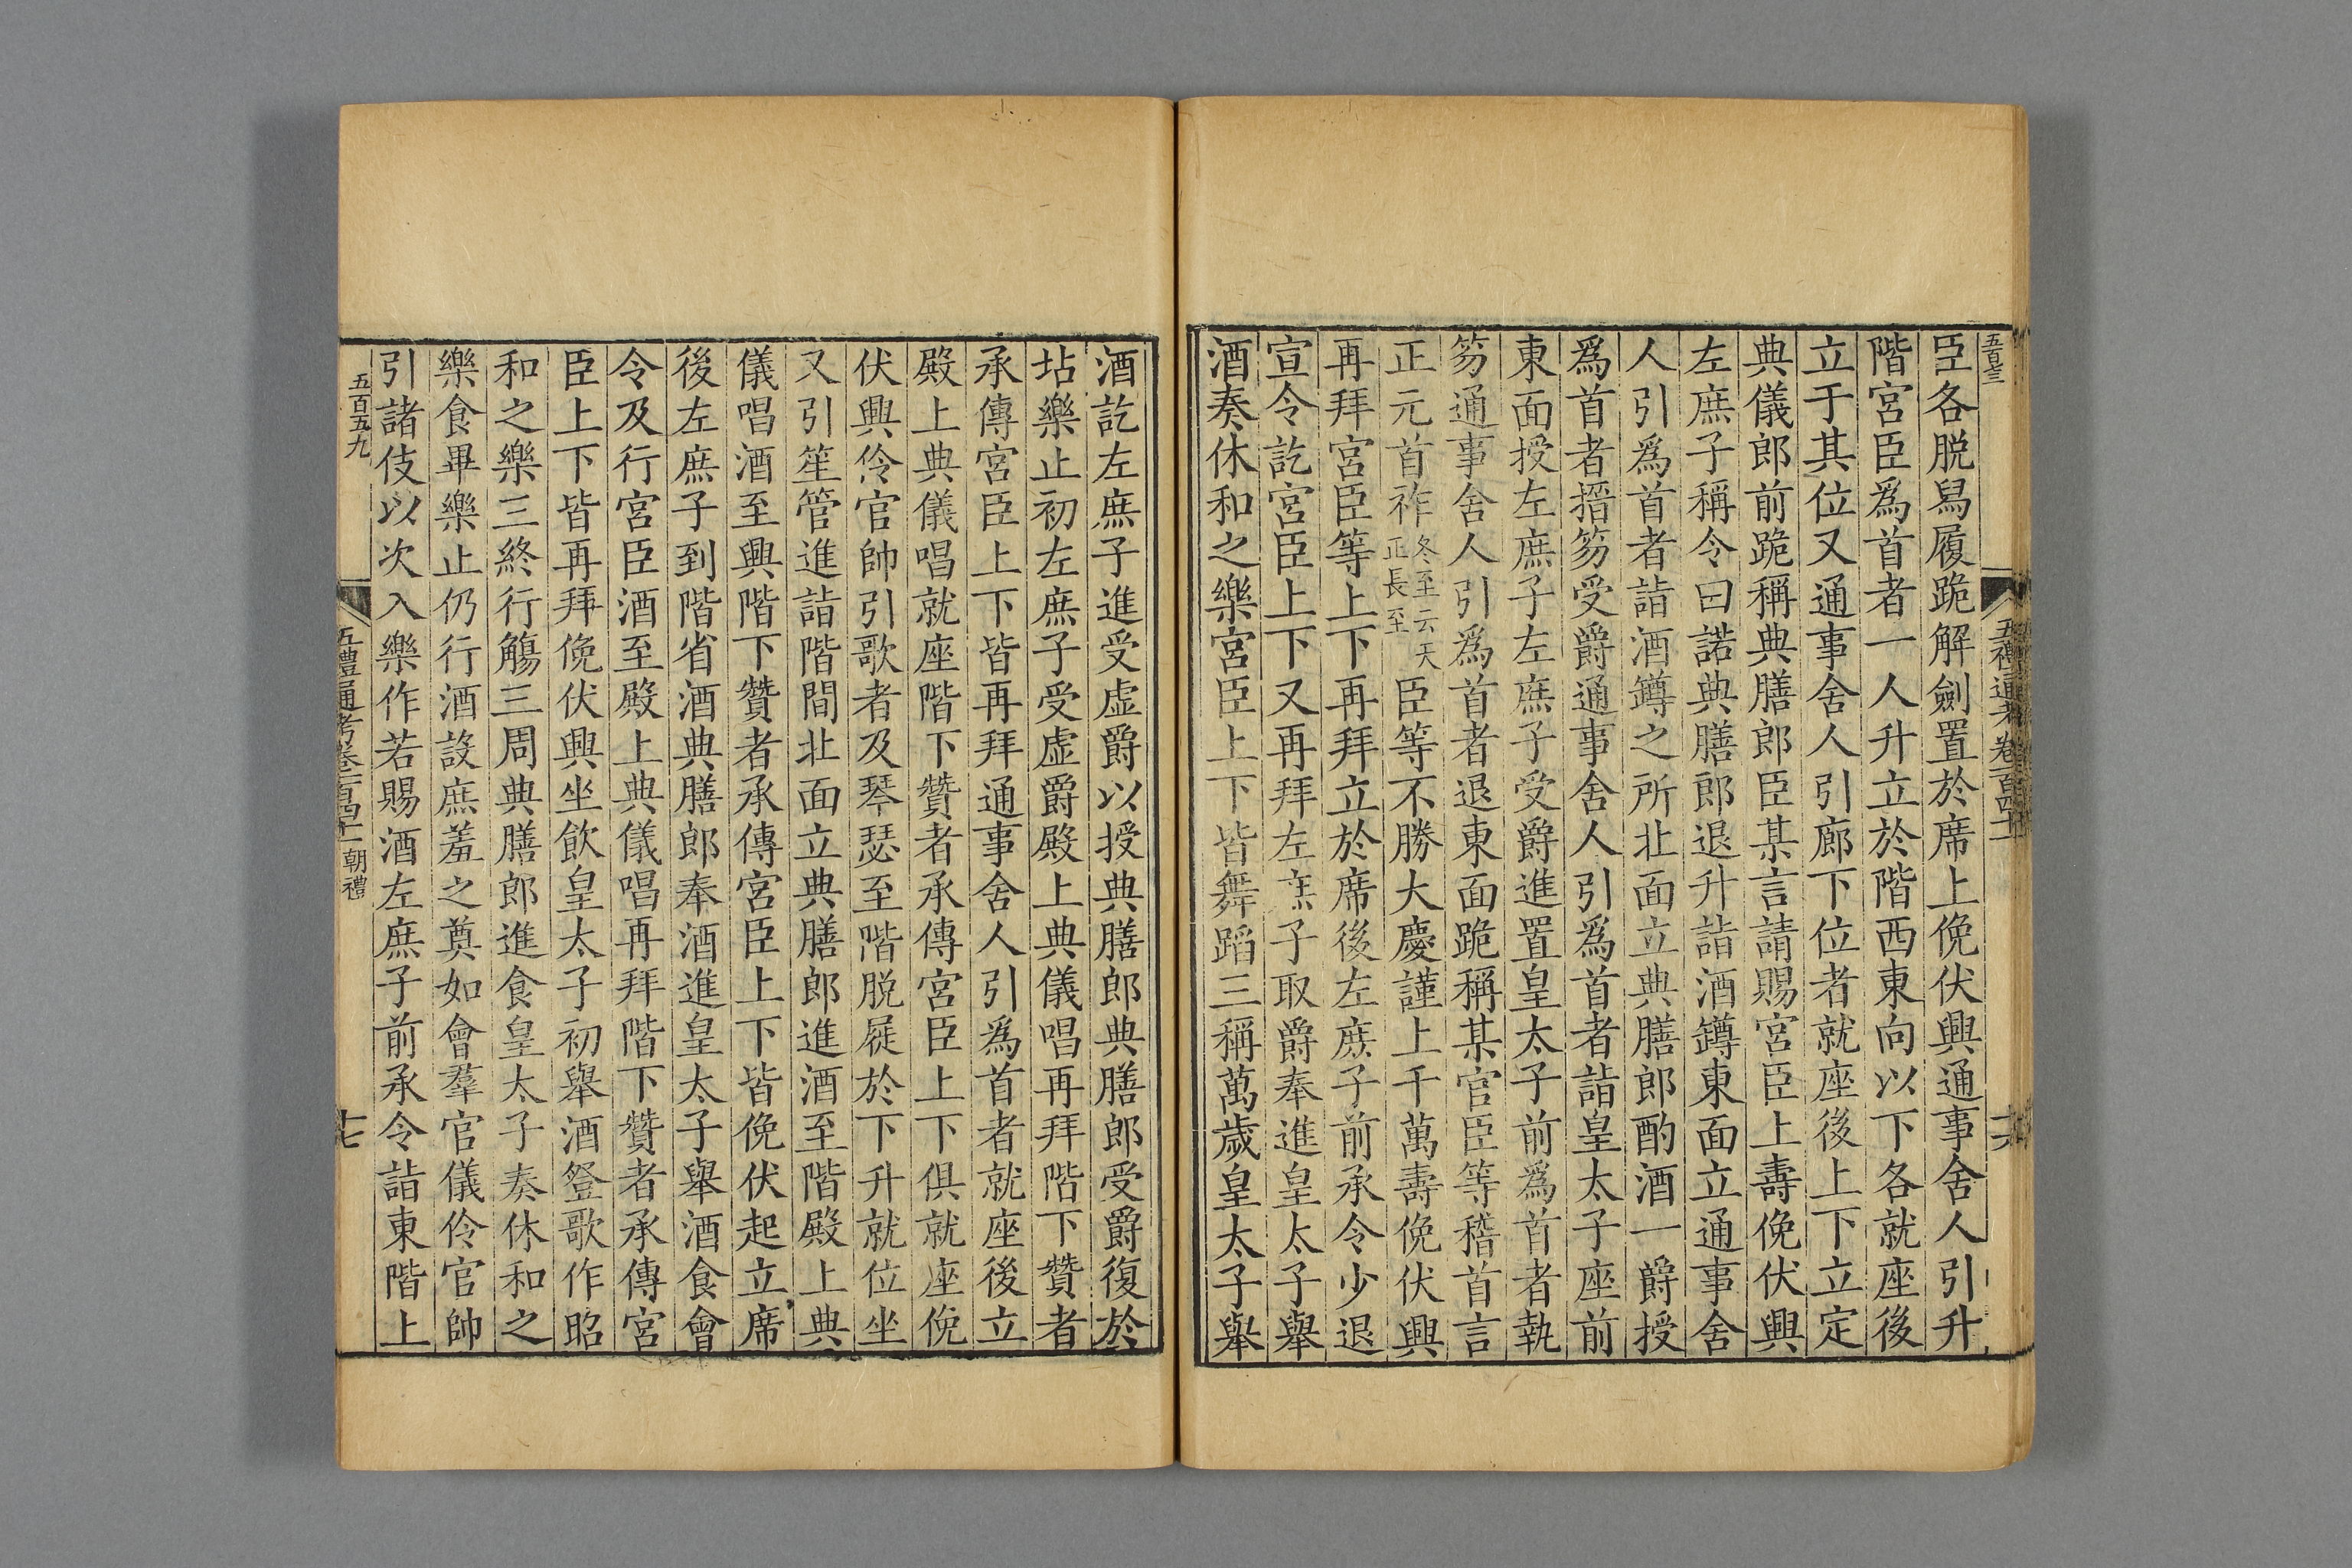 臣各脱舄履跪解劍置於席上俛伏興通事舍人引升
階宮臣爲首者一人升立於階西東向以下各就座後
立于其位又通事舍人引廊下位者就座後上下立定
典儀郎前跪稱典膳郎臣某言請賜宮臣上壽俛伏興
左庶子稱令曰諾典膳郎退升詣酒罇東面立通事舍
人引爲首者詣酒罇之所北面立典膳郎酌酒一爵授
爲首者搢笏受爵通事舍人引爲首者詣皇太子座前
東面授左庶子左庶子受爵進置皇太子前爲首者執
笏通事舍人引爲首者退東面跪稱某宮臣等稽首言
正元首祚冬至云天正長至臣等不勝大慶謹上千萬壽俛伏興
再拜宮臣等上下再拜立於席後左庶子前承令少退
宣令訖宮臣上下又再拜左庶子取爵奉進皇太子舉
酒奏休和之樂宮臣上下皆舞蹈三稱萬歲皇太子舉
酒訖左庶子進受虛爵以授典膳郎典膳郎受爵復於
坫樂止初左庶子受虛爵殿上典儀唱再拜階下贊者
承傳宮臣上下皆再拜通事舍人引爲首者就座後立
殿上典儀唱就座階下贊者承傳宮臣上下俱就座俛
伏興伶官帥引歌者及琴瑟至階脱屣於下升就位坐
又引笙管進詣階間北面立典膳郎進酒至階殿上典
儀唱酒至興階下贊者承傳宮臣上下皆俛伏起立席
後左庶子到階省酒典膳郎奉酒進皇太子舉酒食會
令及行宮臣酒至殿上典儀唱再拜階下贊者承傳宮
臣上下皆再拜俛伏興坐飲皇太子初舉酒登歌作昭
和之樂三終行觴三周典膳郎進食皇太子奏休和之
樂食畢樂止仍行酒設庶羞之奠如會羣官儀伶官帥
引諸伎以次入樂作若賜酒左庶子前承令詣東階上
五百五九
五禮通考卷一百四十一 朝禮
十七